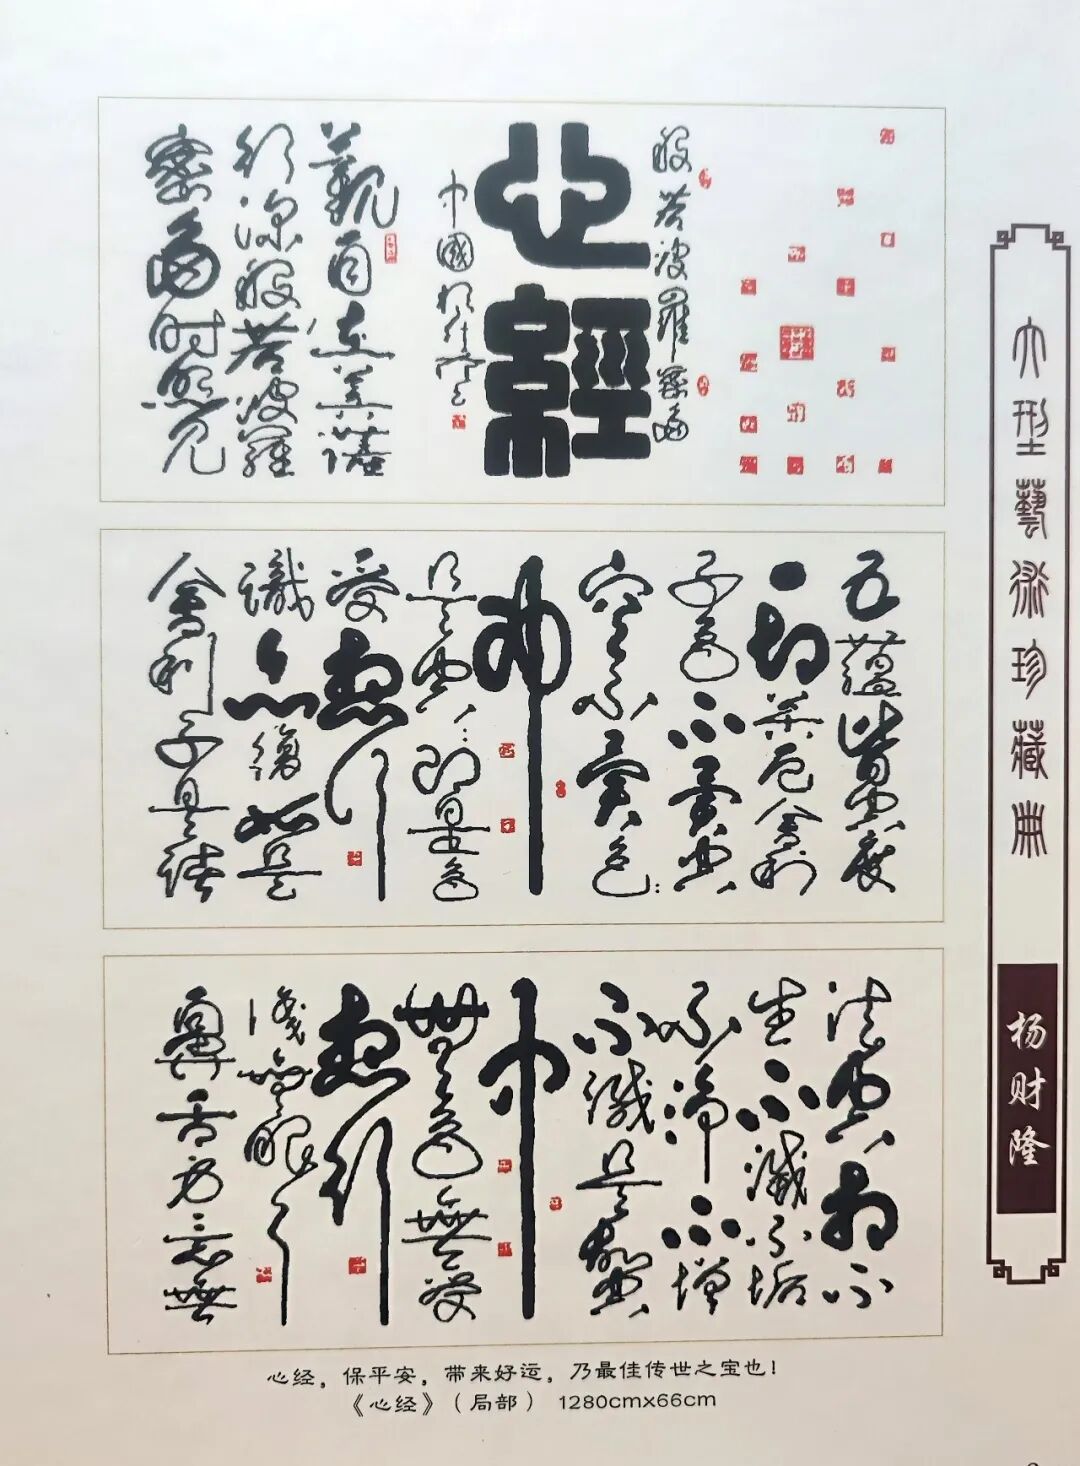 般若波羅蜜多
心經
中國
觀自在菩薩
行深般若波羅
蜜多時照見
五蘊皆空度
一切苦厄舍利
子色不異空
空不異色
即
是空即是色
受想行
識亦復如是
舍利子是諸
法空相不
生不滅不垢
不淨不增
不減是故空
中
無色無受
想行
識無眼耳
鼻舌身意無
大型藝術珍藏典
杨财隆
心经，保平安，带来好运，乃最佳传世之宝也！
《心经》（局部） 1280cmx66cm